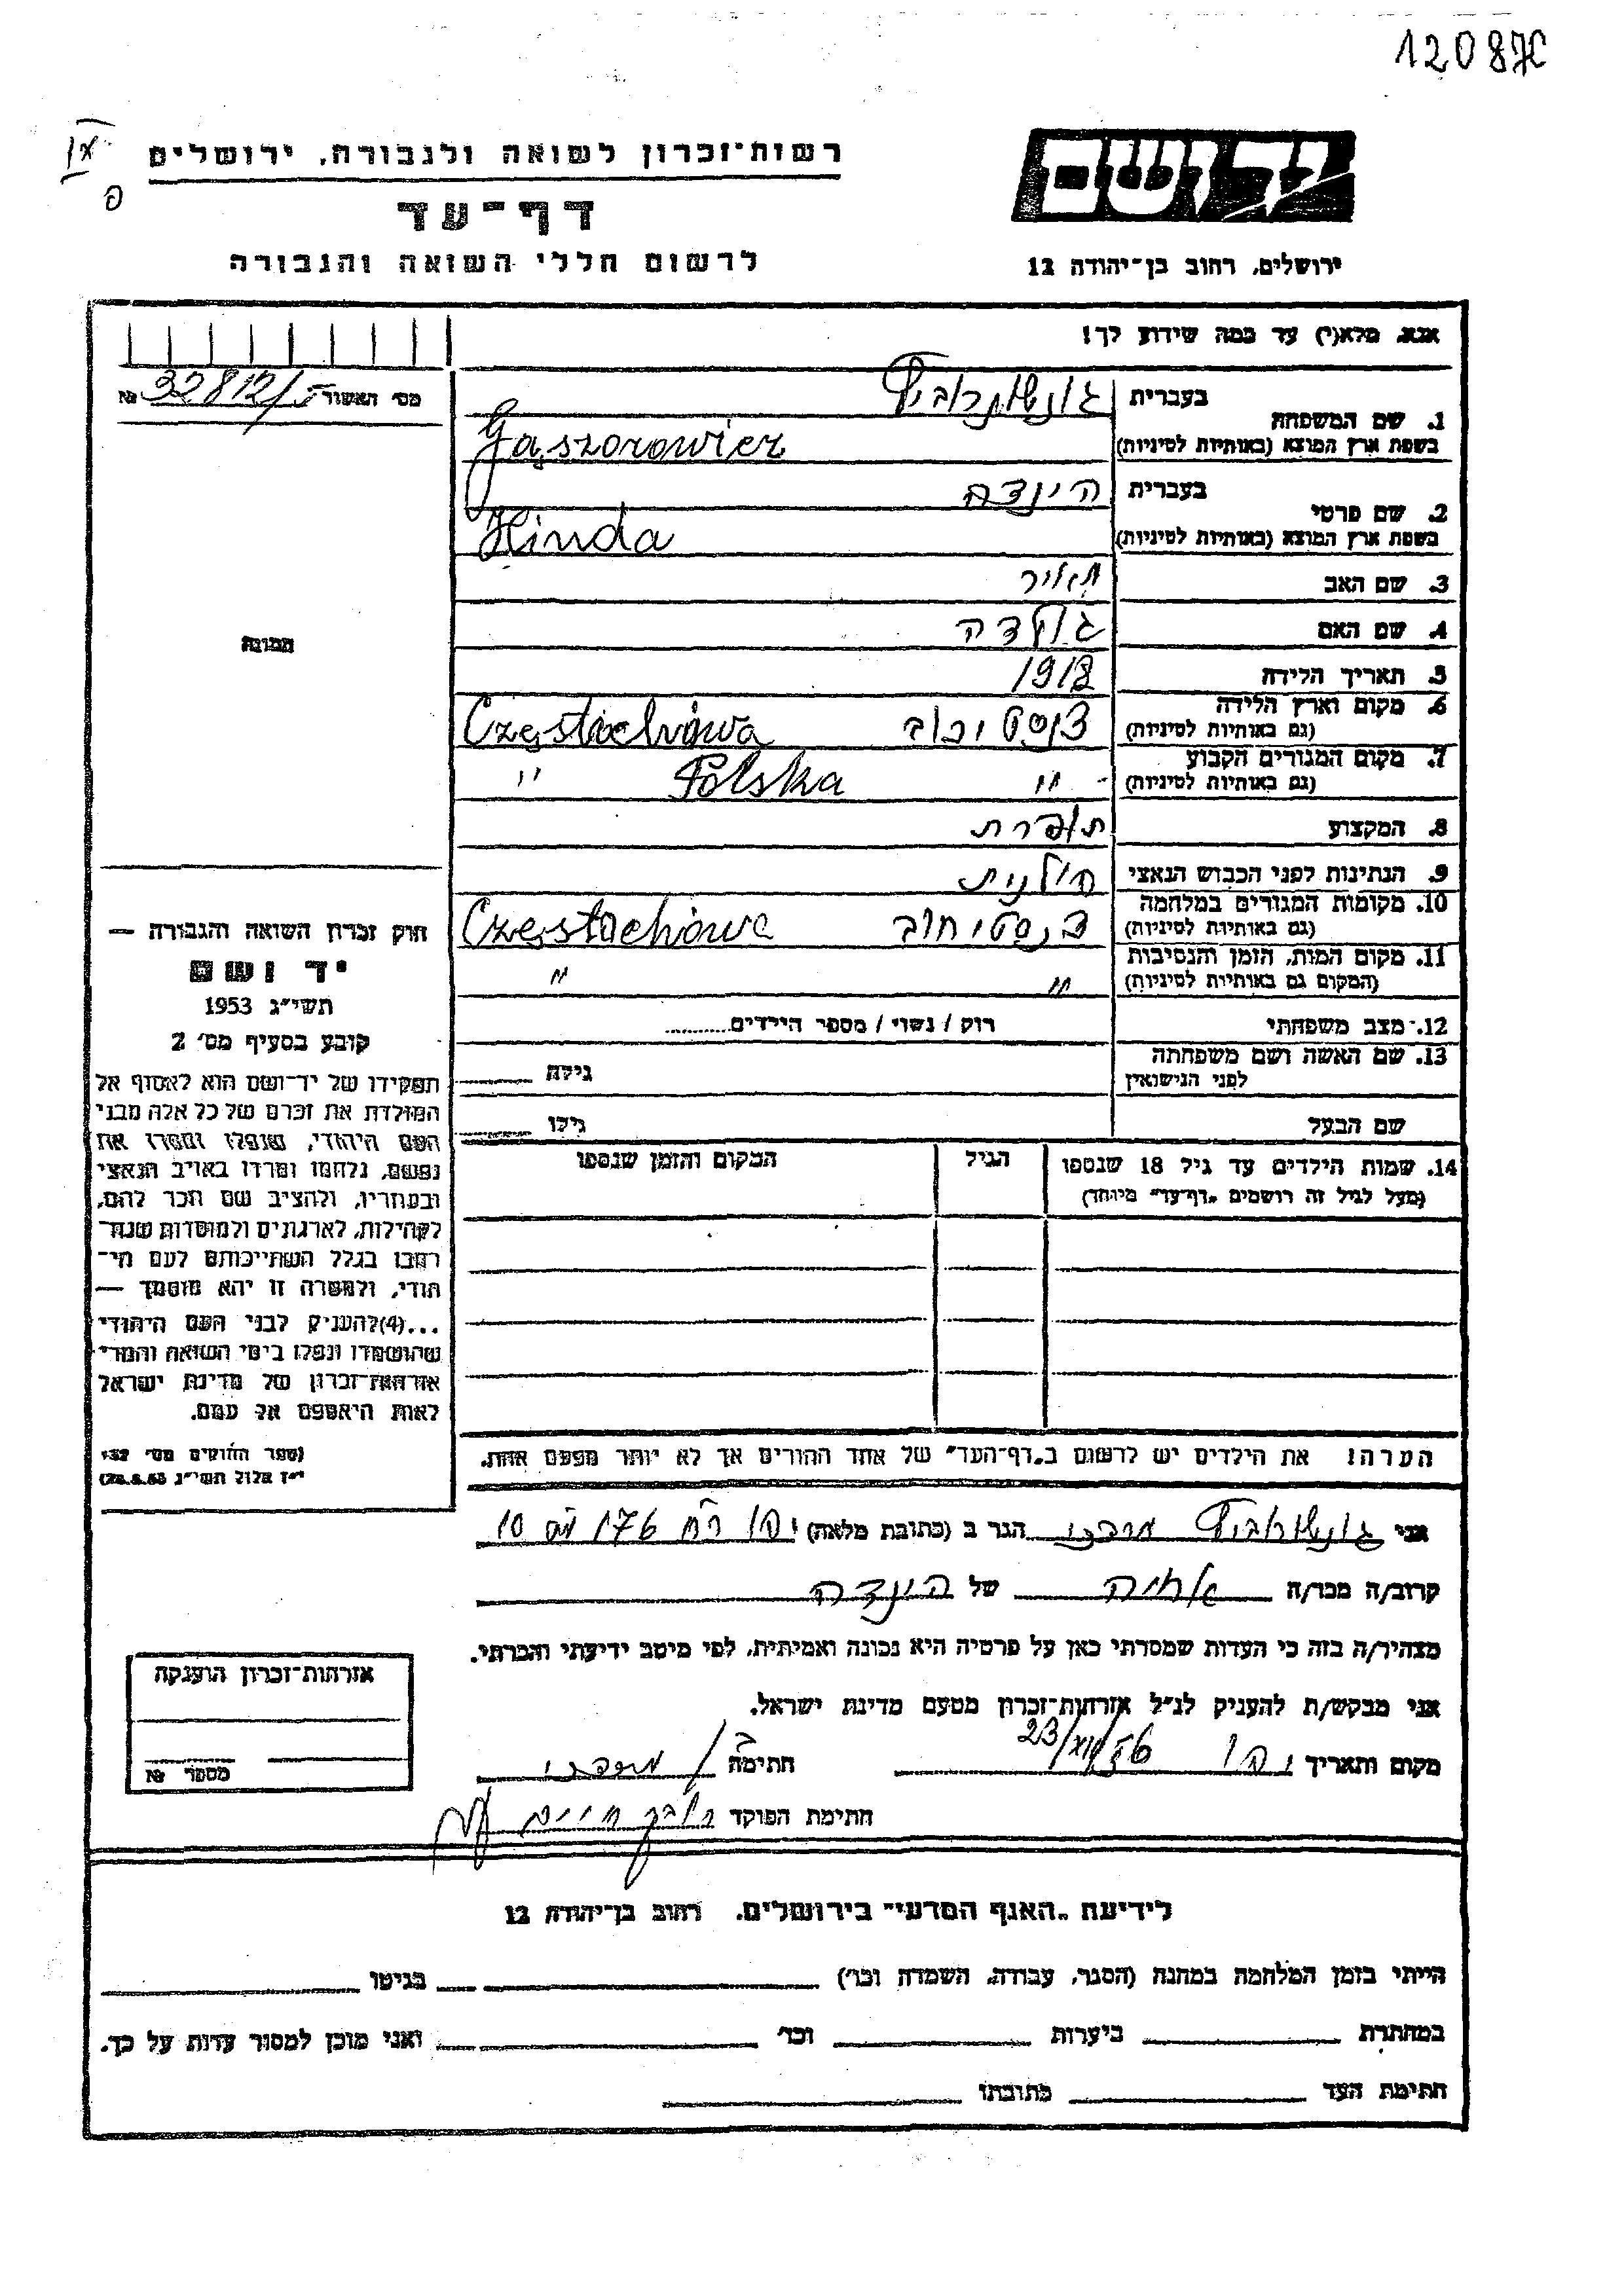 120870
רשות־זכרון לשואה ולגבורה, ירושלים
דף־עד
לרשום חללי השואה והגבורה
יד ושם
ירושלים, רחוב בן־יהודה 12
אנא, מלא(י) עד כמה שידוע לך!
מס' האשור 32812/ №
1. שם המשפחה
בעברית
בשפת ארץ המוצא (באותיות לטיניות)
Gąszorowicz
2. שם פרטי
בעברית הינדה
בשפת ארץ המוצא (באותיות לטיניות)
Hinda
3. שם האב מאיר
4. שם האם גולדה
5. תאריך הלידה
6. מקום וארץ הלידה
(גם באותיות לטיניות)
Częstochówa
7. מקום המגורים הקבוע
(גם באותיות לטיניות)
" Polska "
8. המקצוע תופרת
9. הנתינות לפני הכבוש הנאצי פולנית
10. מקומות המגורים במלחמה
(גם באותיות לטיניות)
צ'נסטוחוב Częstochówa
11. מקום המות, הזמן והנסיבות
(המקום גם באותיות לטיניות)
" "
12. מצב משפחתי רוק / נשוי / מספר הילדים
13. שם האשה ושם משפחתה
לפני הנישואין גילה
שם הבעל גילו
14. שמות הילדים עד גיל 18 שנספו
(מעל לגיל זה רושמים „דף־עד" מיוחד)
הגיל
המקום והזמן שנספו
הערה! את הילדים יש לרשום ב„דף־העד" של אחד ההורים אך לא יותר מפעם אחת.
תמונה
חוק זכרון השואה והגבורה —
יד ושם
תשי"ג 1953
קובע בסעיף מס' 2
תפקידו של יד־ושם הוא לאסוף אל
המולדת את זכרם של כל אלה מבני
העם היהודי, שנפלו ומסרו את
נפשם, נלחמו ומרדו באויב הנאצי
ובעוזריו, ולהציב שם וזכר להם,
לקהילות, לארגונים ולמוסדות שנח־
רבו בגלל השתייכותם לעם הי־
הודי, ולמטרה זו יהא מוסמך —
...(4) להעניק לבני העם היהודי
שהושמדו ונפלו בימי השואה והמרי
אזרחות־זכרון של מדינת ישראל
לאות היאספם אל עמם.
(ספר החוקים מס' 132
י"ז אלול תשי"ג 28.8.53)
אני מרדכי הגר ב (כתובת מלאה) יפו
קרוב/ה מכר/ה אחיה של הינדה
מצהיר/ה בזה כי העדות שמסרתי כאן על פרטיה היא נכונה ואמיתית, לפי מיטב ידיעתי והכרתי.
אני מבקש/ת להעניק לנ"ל אזרחות־זכרון מטעם מדינת ישראל.
מקום ותאריך יפו 23/XII/56 חתימה מרדכי
חתימת הפוקד
אזרחות־זכרון הוענקה
מספר №
לידיעת „האגף המדעי" בירושלים, רחוב בן־יהודה 12
הייתי בזמן המלחמה במחנה (הסגר, עבודה, השמדה וכו') בגיטו
במחתרת ביערות וכו' ואני מוכן למסור עדות על כך.
חתימת העד כתובתו